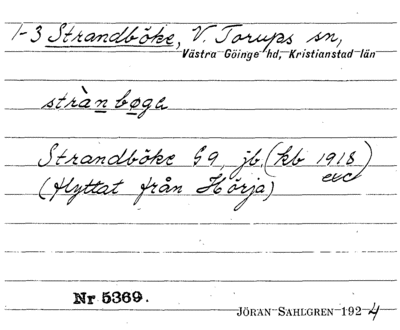 1-3 Strandböke, V. Torups sn,
Västra Göinge hd, Kristianstad län
stràn bøgа
Strandböke G9, jb. (kb 1918)
exc
(flyttat från Hörja)
Nr 5369.
JÖRAN SAHLGREN 1924